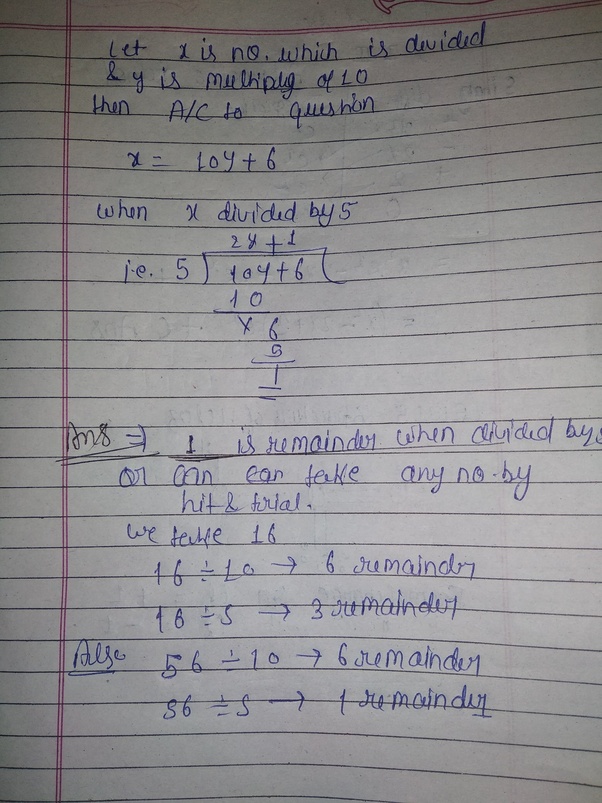 Let x is no. which is divided
& y is multiply of 10
then A/C to question
x = 10y + 6
when x divided by 5
2y + 1
i.e. 5 ) 10y + 6 (
10
x 6
5
1
Ans ⇒ 1 is remainder when divided by 5
or can can take any no. by
hit & trial.
We take 16
16 ÷ 10 → 6 remainder
16 ÷ 5 → 3 remainder
Also 56 ÷ 10 → 6 remainder
56 ÷ 5 → 1 remainder